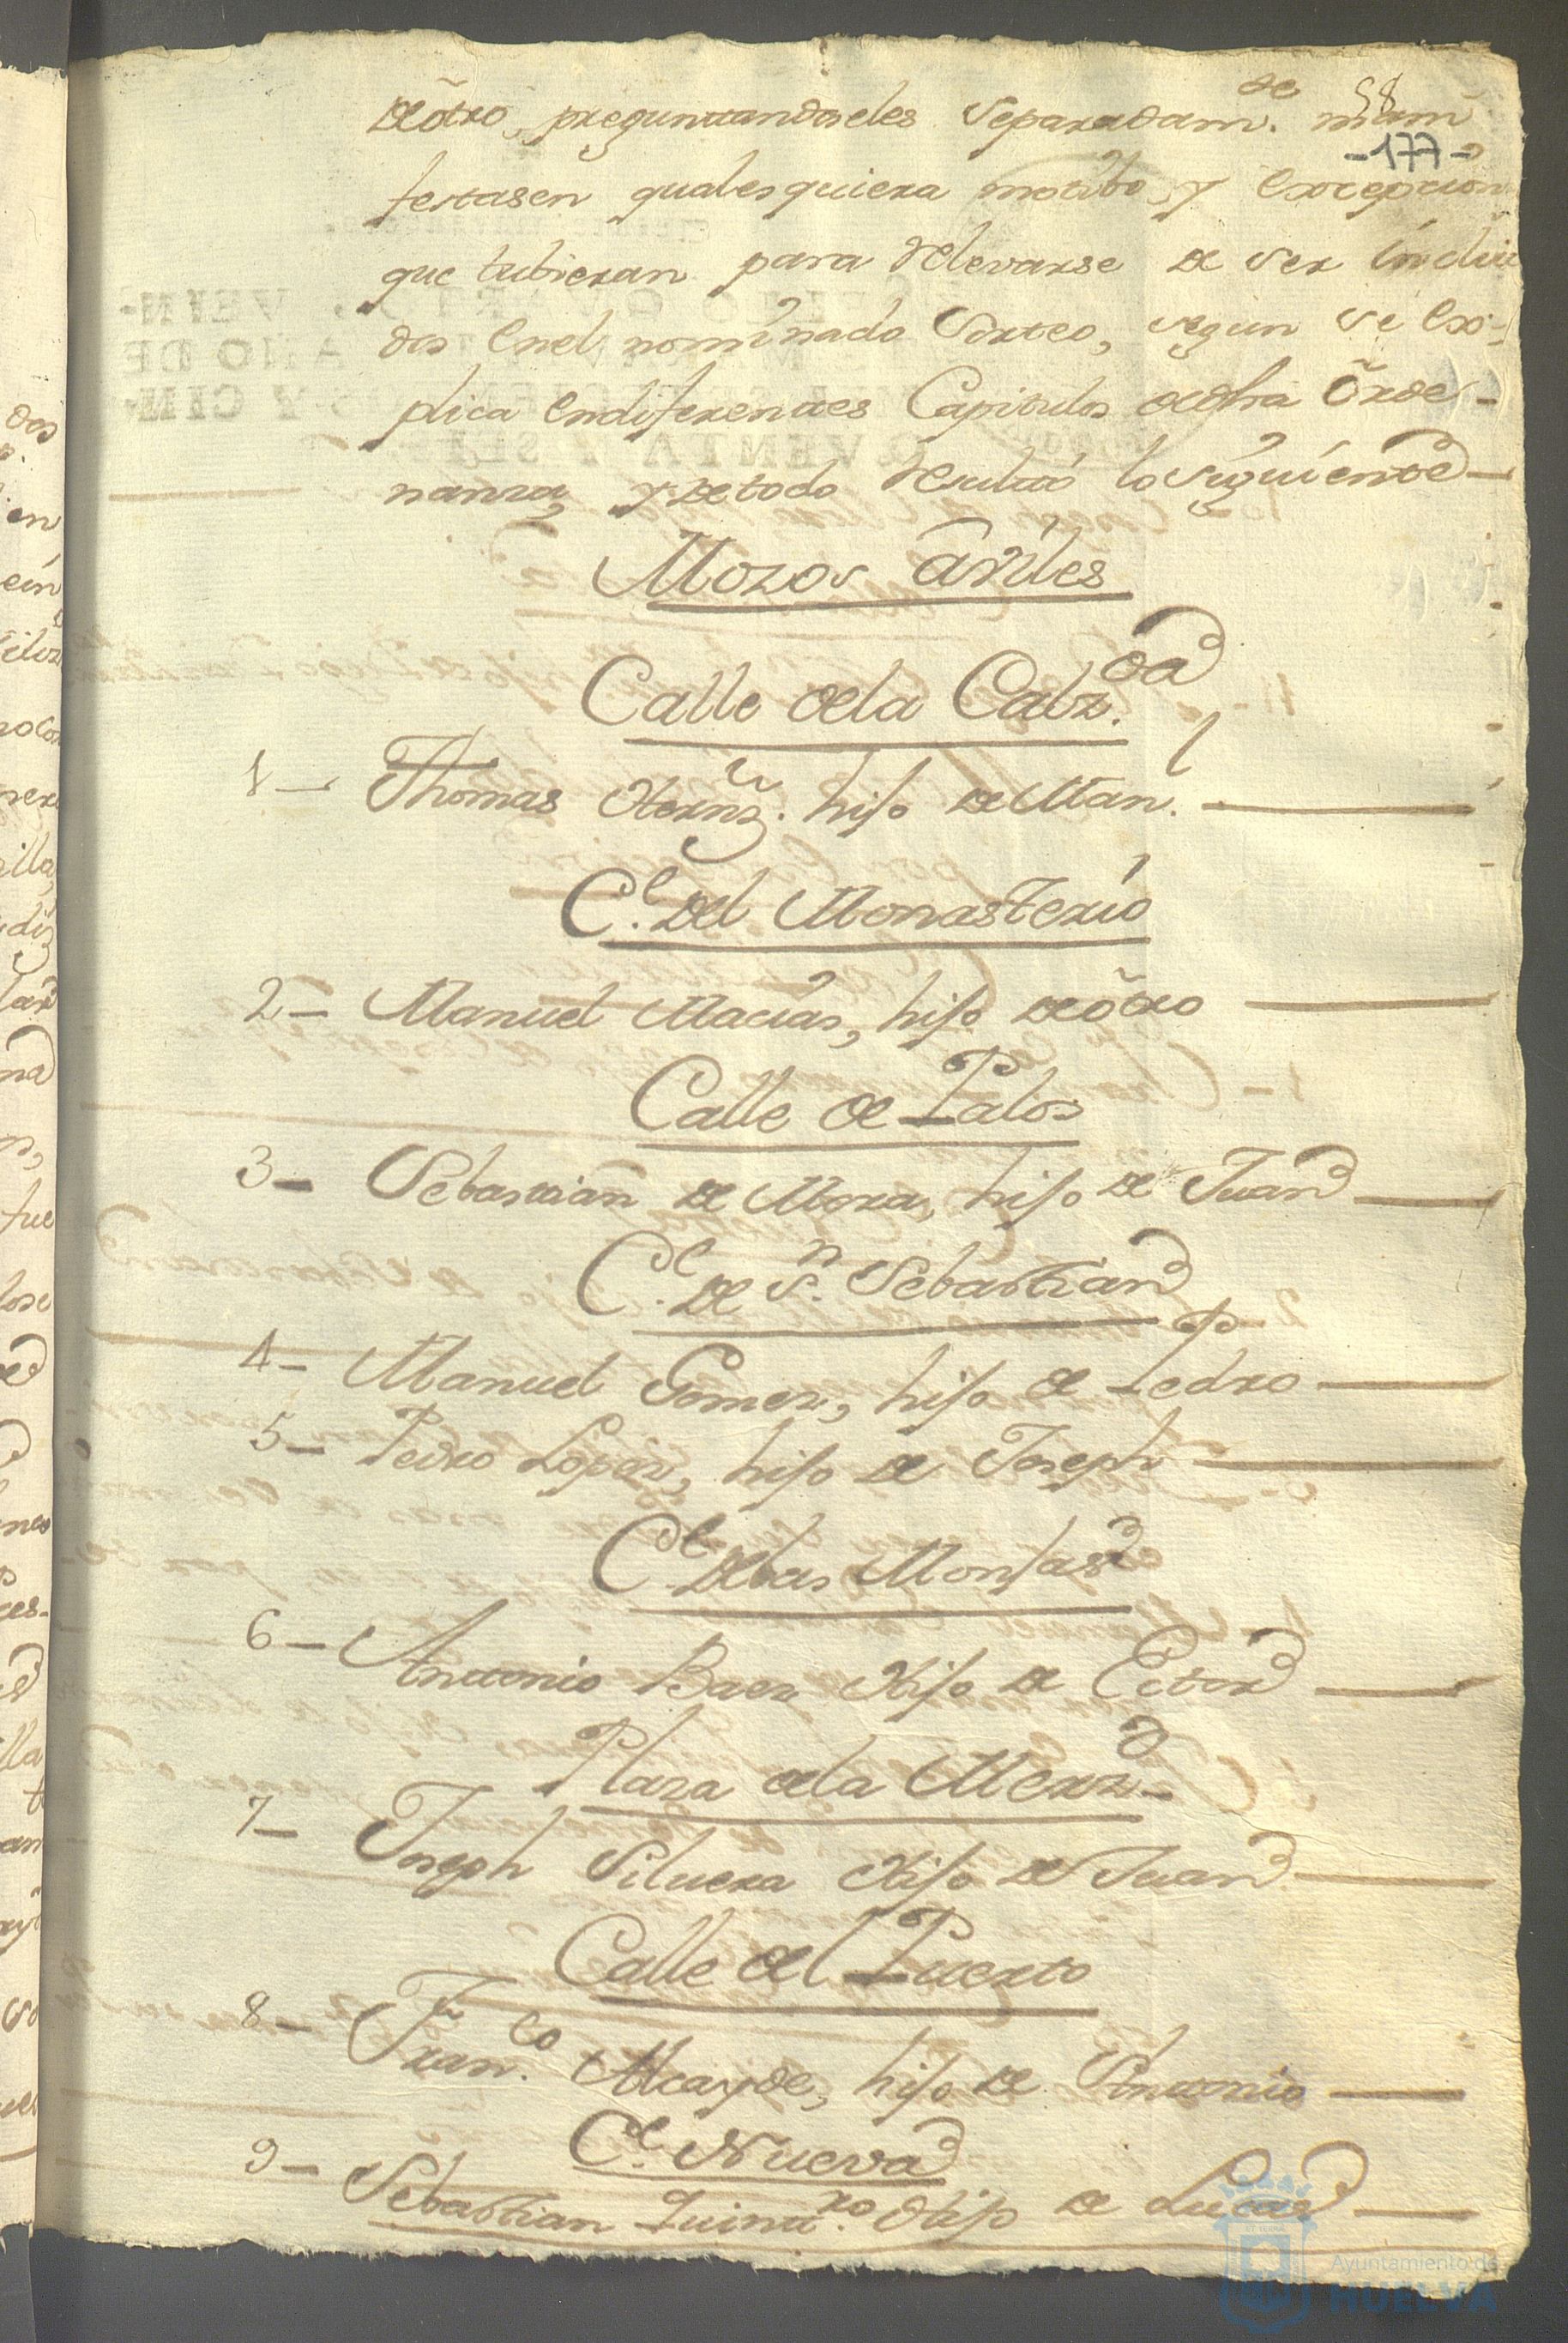 58
-177-
de õtro, preguntandoseles separadam.te mani
festasen qualesquiera motibo, y Excepcion
que tubieran para relevarse de ser inclui
dos Enel nominado Sorteo, segun se Ex-
plica Endiferentes Capitulos dedha Orde-
nanza, y de todo resultó lo siguiente
Mozos aviles
Calle dela Calz.da
1- Thomas Hernz. hijo de Man.l
C.e del Monasterio
2- Manuel Macias, hijo de õtro
Calle de Palos
3- Sebastian de Mora, hijo de Juan
C.e de S.n Sebastian
4- Manuel Gomez, hijo de Pedro
5- Pedro Lopez, hijo de Joseph
C.e delas Monjas
6- Antonio Baez Hijo de Ector
Plaza dela Merz.d
7- Joseph Siluera Hijo de Juan
Calle del Puerto
8- Fran.co Alcayde, hijo de Antonio
C.e Nueva
9- Sebastian Quint.ro Hijo de Lucas
Ayuntamiento de
HUELVA